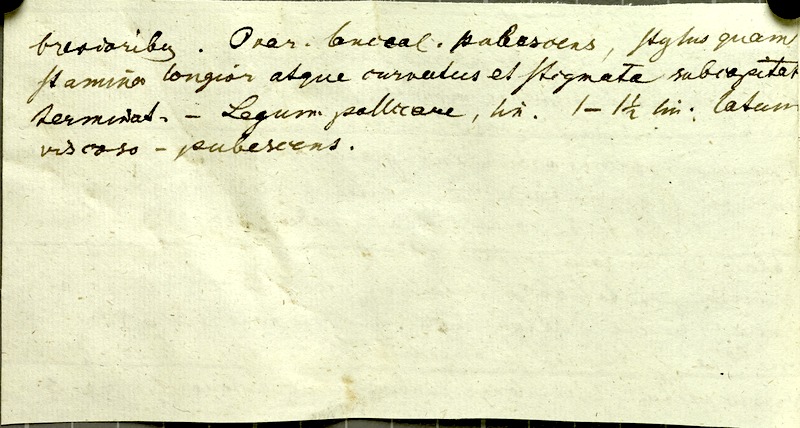 brevioribus. Ovar. lanceal. pubescens, stylus quam
stamina longior atque curvatus et stigmata subcapitat
terminat. - Legum. pollicare, lin. 1-1½ lin. latum
viscoso - pubescens.